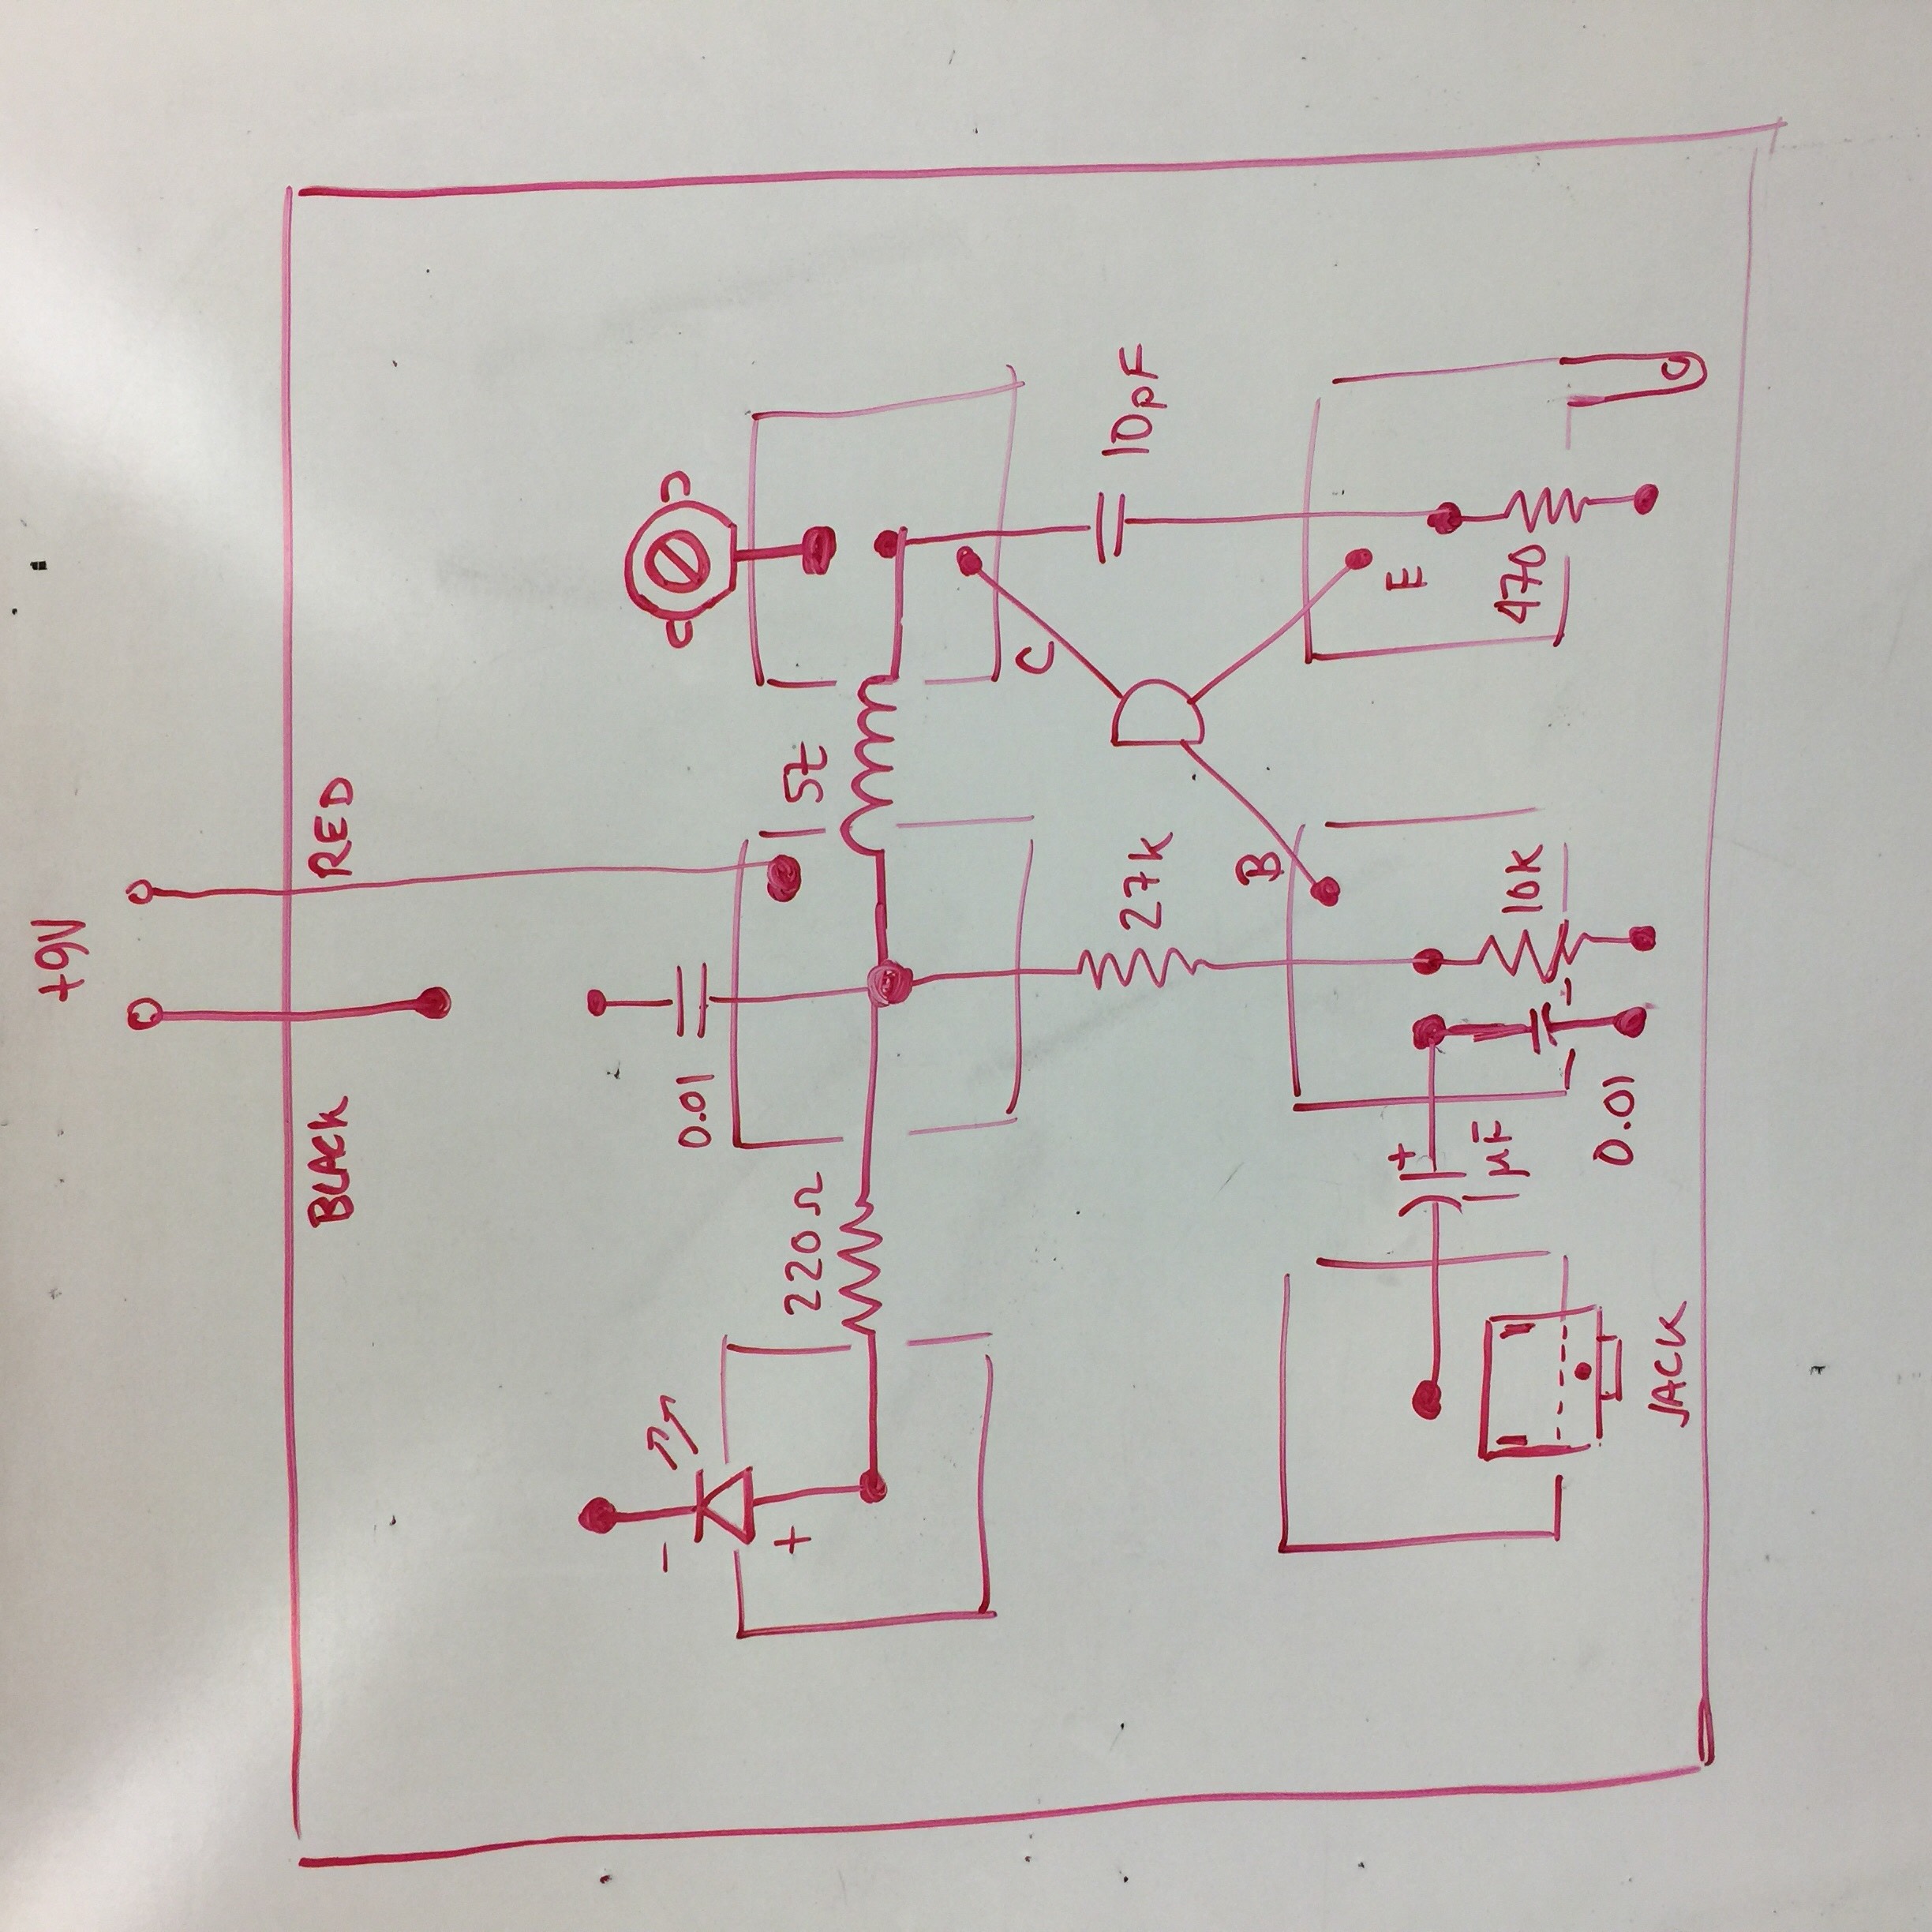 +9V
BLACK
RED
-
0.01
+
220Ω
5t
C
27k
10pF
B
+
E
1µF
10K
470
0.01
JACK